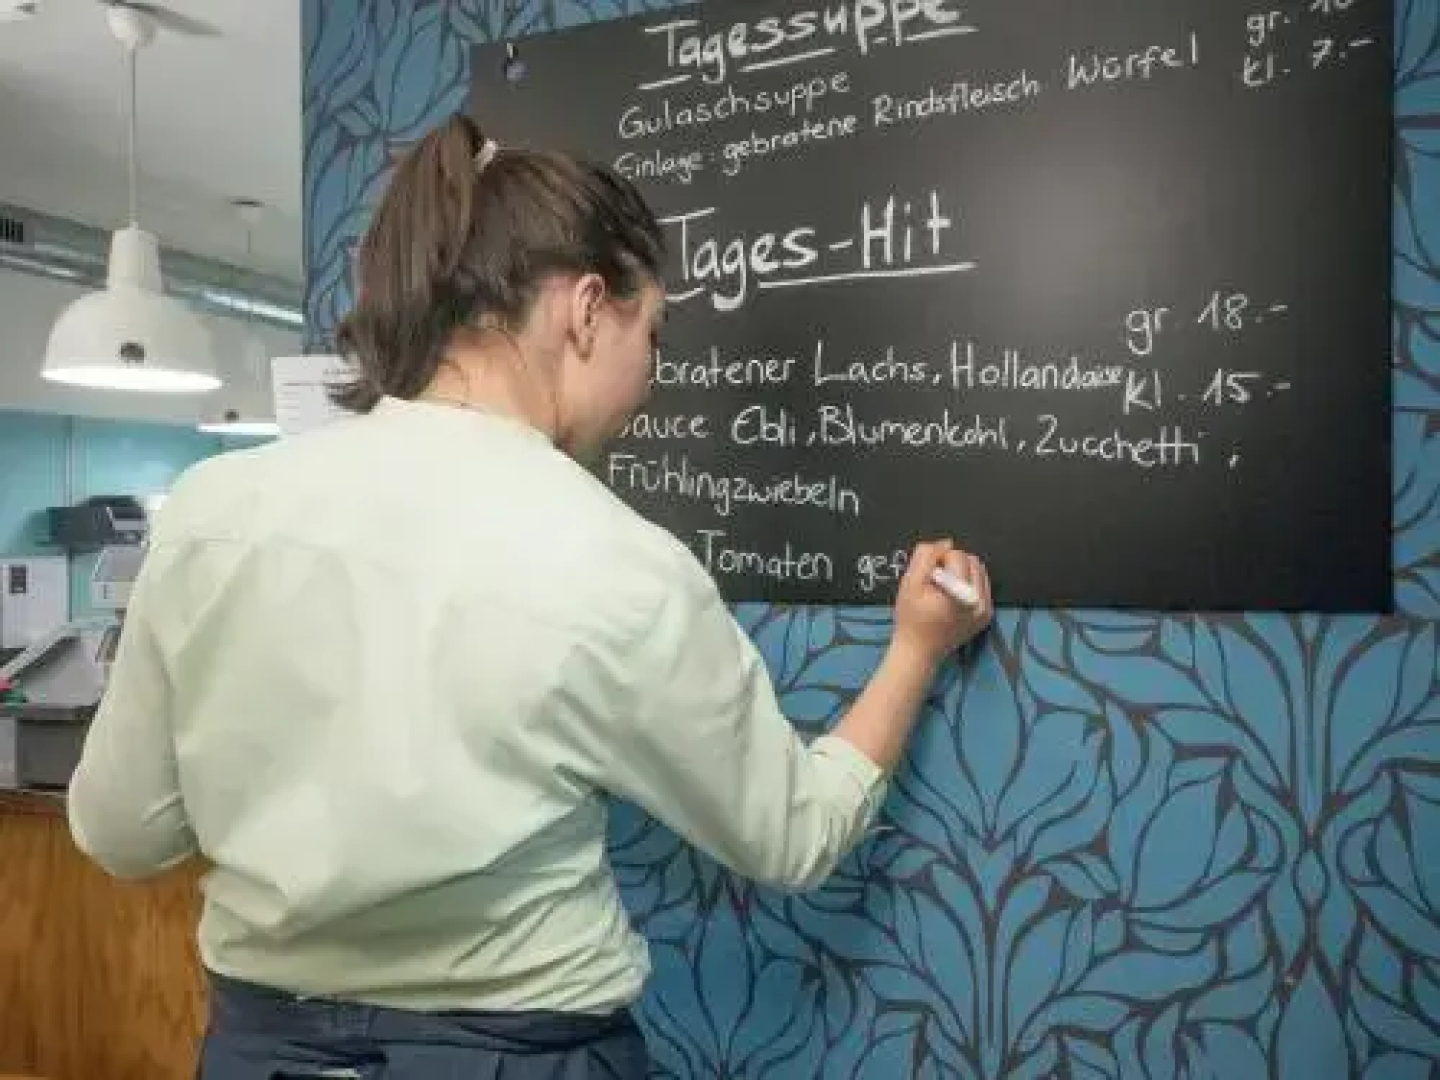 Tagessuppe
gr. 10
Gulaschsuppe
kl. 7.-
Einlage: gebratene Rindsfleisch Würfel
Tages-Hit
gr. 18.-
bratener Lachs, Hollandaise
kl. 15.-
Sauce Ebli, Blumenkohl, Zucchetti,
Frühlingzwiebeln
Tomaten gef